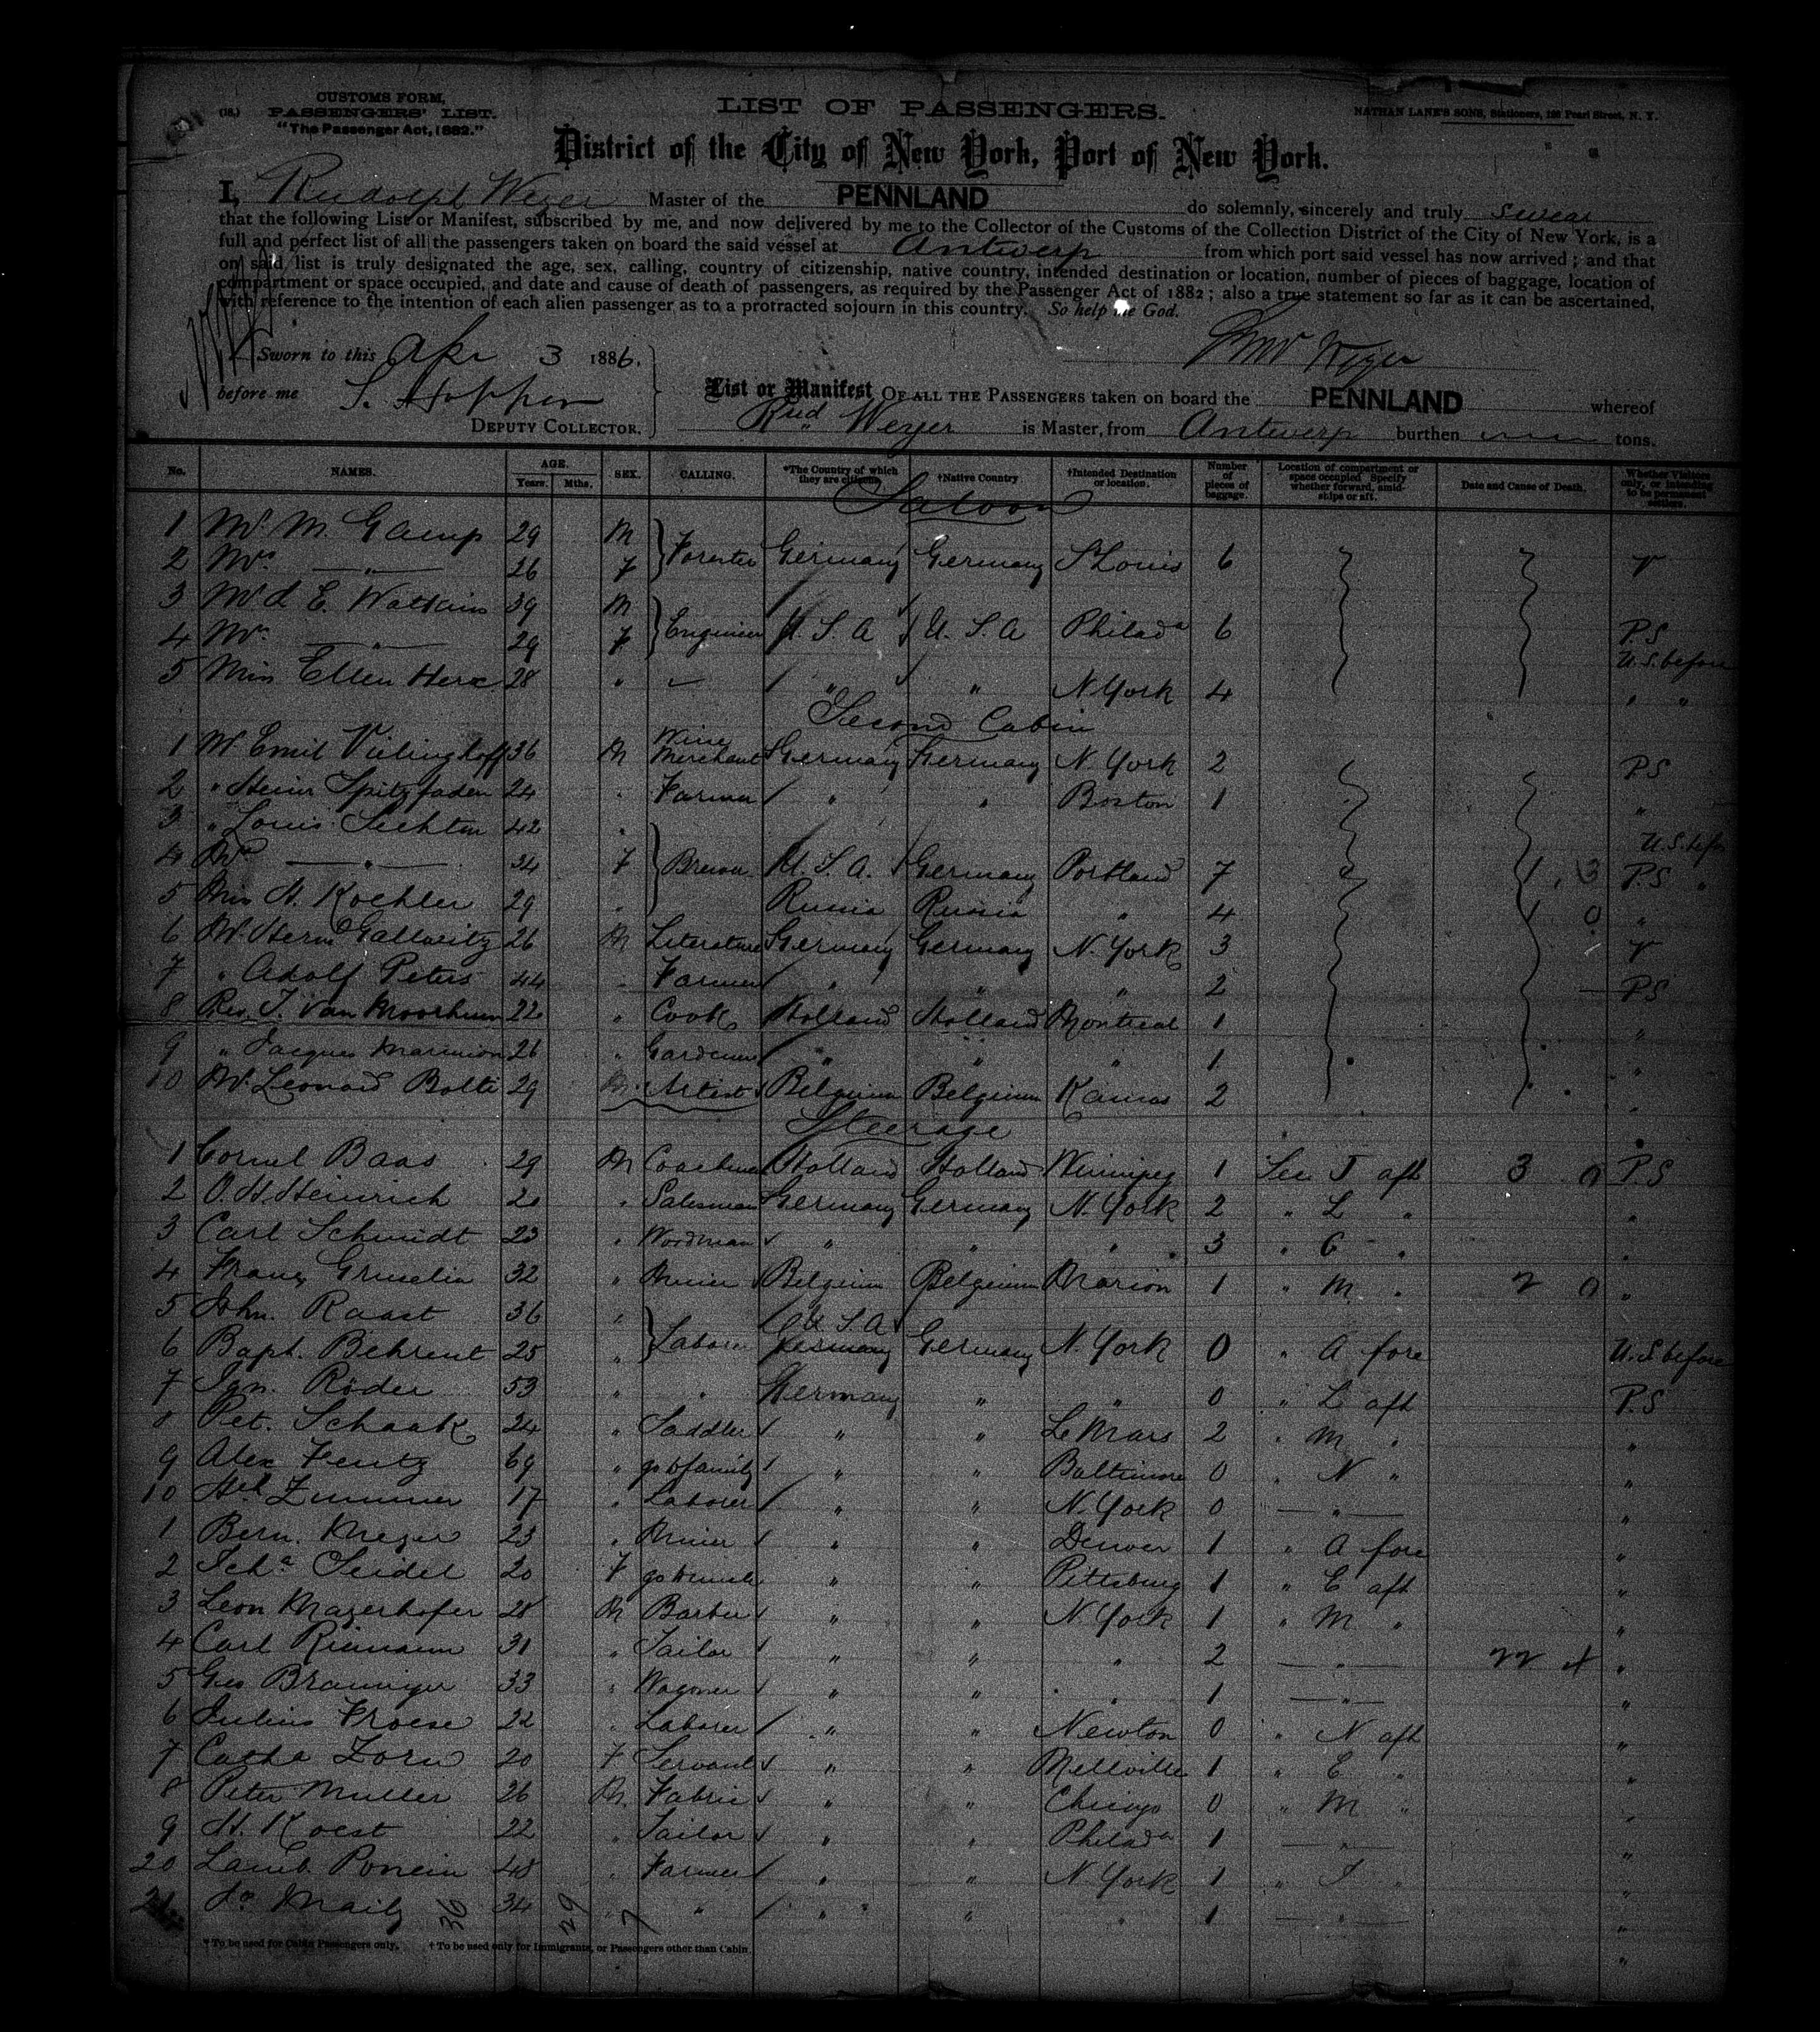 (18.)
CUSTOMS FORM,
PASSENGERS' LIST.
"The Passenger Act, 1882."
LIST OF PASSENGERS.
NATHAN LANE'S SONS, Stationers, 199 Pearl Street, N. Y.
District of the City of New York, Port of New York.
I, Rudolph Weyer Master of the PENNLAND do solemnly, sincerely and truly swear
that the following List or Manifest, subscribed by me, and now delivered by me to the Collector of the Customs of the Collection District of the City of New York, is a
full and perfect list of all the passengers taken on board the said vessel at Antwerp from which port said vessel has now arrived; and that
on said list is truly designated the age, sex, calling, country of citizenship, native country, intended destination or location, number of pieces of baggage, location of
compartment or space occupied, and date and cause of death of passengers, as required by the Passenger Act of 1882; also a true statement so far as it can be ascertained,
with reference to the intention of each alien passenger as to a protracted sojourn in this country. So help me God.
Sworn to this Apr 3 1886. Weyer
before me S. Hopper
DEPUTY COLLECTOR.
List or Manifest OF ALL THE PASSENGERS taken on board the PENNLAND whereof
Rud Weyer is Master, from Antwerp burthen tons.
No. NAMES. AGE. Years. Mths. SEX. CALLING. *The Country of which they are citizens. †Native Country †Intended Destination or location. Number of pieces of baggage. Location of compartment or space occupied Specify whether forward, amidships or aft. Date and Cause of Death. Whether Visitors only, or intending to be permanent settlers.
Saloon
1 Mr M. Gamp 29 M
2 Mrs " 26 F Germany Germany St Louis 6 V
3 Mr d E. Watkins 39 M
4 Mrs " 29 F Engineer U. S. A U. S. A Philada 6 P.S
U.S. before
5 Miss Ellen Herx 28 " " " N. York 4 " "
Second Cabin
1 Mr Emil Vielinghoff 36 M Wine Merchant Germany Germany N. York 2 PS
2 " Heinr Spitzfaden 24 " Farmer " " Boston 1 "
3 " Louis 42 " U.S. bef
4 Mrs " 34 F U. S. A. Germany Portland 7 P.S "
5 Miss A. Koehler 29 " Russia Russia " 4 "
6 Mr Herm Gallwitz 26 M Literature Germany Germany N. York 3 V
7 " Adolf Peters 44 " Farmer " " " 2 PS
8 Rev. J. Van 22 " Cook Holland Holland Montreal 1 "
9 " Jacques 26 " Gardener " " " 1 "
10 Mr Leonard Bolti 29 M Artist Belgium Belgium Kansas 2 "
Steerage
1 Cornel Baas 29 M Coachman Holland Holland Winnipeg 1 Sec J aft 3 0 PS
2 O. H. Heinrich 20 " Salesman Germany Germany N. York 2 " L " "
3 Carl Schmidt 23 " Woodman " " " 3 " C " "
4 Franz 32 " Miner Belgium Belgium Marion 1 " M " "
5 John Raast 36 " U. S. A
6 Bapt. Behrent 25 " Laborer Germany Germany N. York 0 " A fore U.S. before
7 Ign. Röder 53 " " Germany " " 0 " L aft P.S
8 Pet. Schaak 24 " Saddler " " Le Mars 2 " M " "
9 Alex Fentz 69 " go to family " " Baltimore 0 " N " "
10 Hch Zimmer 17 " Laborer " " N. York 0 " "
1 Bern. Mezer 23 " Miner " " Denver 1 " A fore "
2 Scha Seidel 20 F " " Pittsburg 1 " E aft "
3 Leon Mayerhofer 28 M Barber " " N. York 1 " M " "
4 Carl Riemann 31 " Tailor " " " 2 " "
5 Geo Brauniger 33 " Wagoner " " " 1 " "
6 Julius Froese 22 " Laborer " " Newton 0 " N aft "
7 Catha Zorn 20 F Servant " " Mellville 1 " E " "
8 Peter Muller 26 M Fabric " " Chicago 0 " M " "
9 H. Koest 22 " Tailor " " Philada 1 " "
20 Lamb. Poncin 48 " Farmer " " N. York 1 " J " "
21 do Maily 34 " " " " " 1 " "
36 29 7
* To be used for Cabin Passengers only. † To be used only for Immigrants, or Passengers other than Cabin.